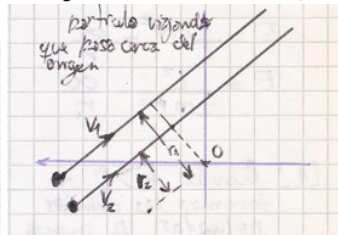 partícula viajando
que pasa cerca del
origen
V1
r1
O
r2
V2